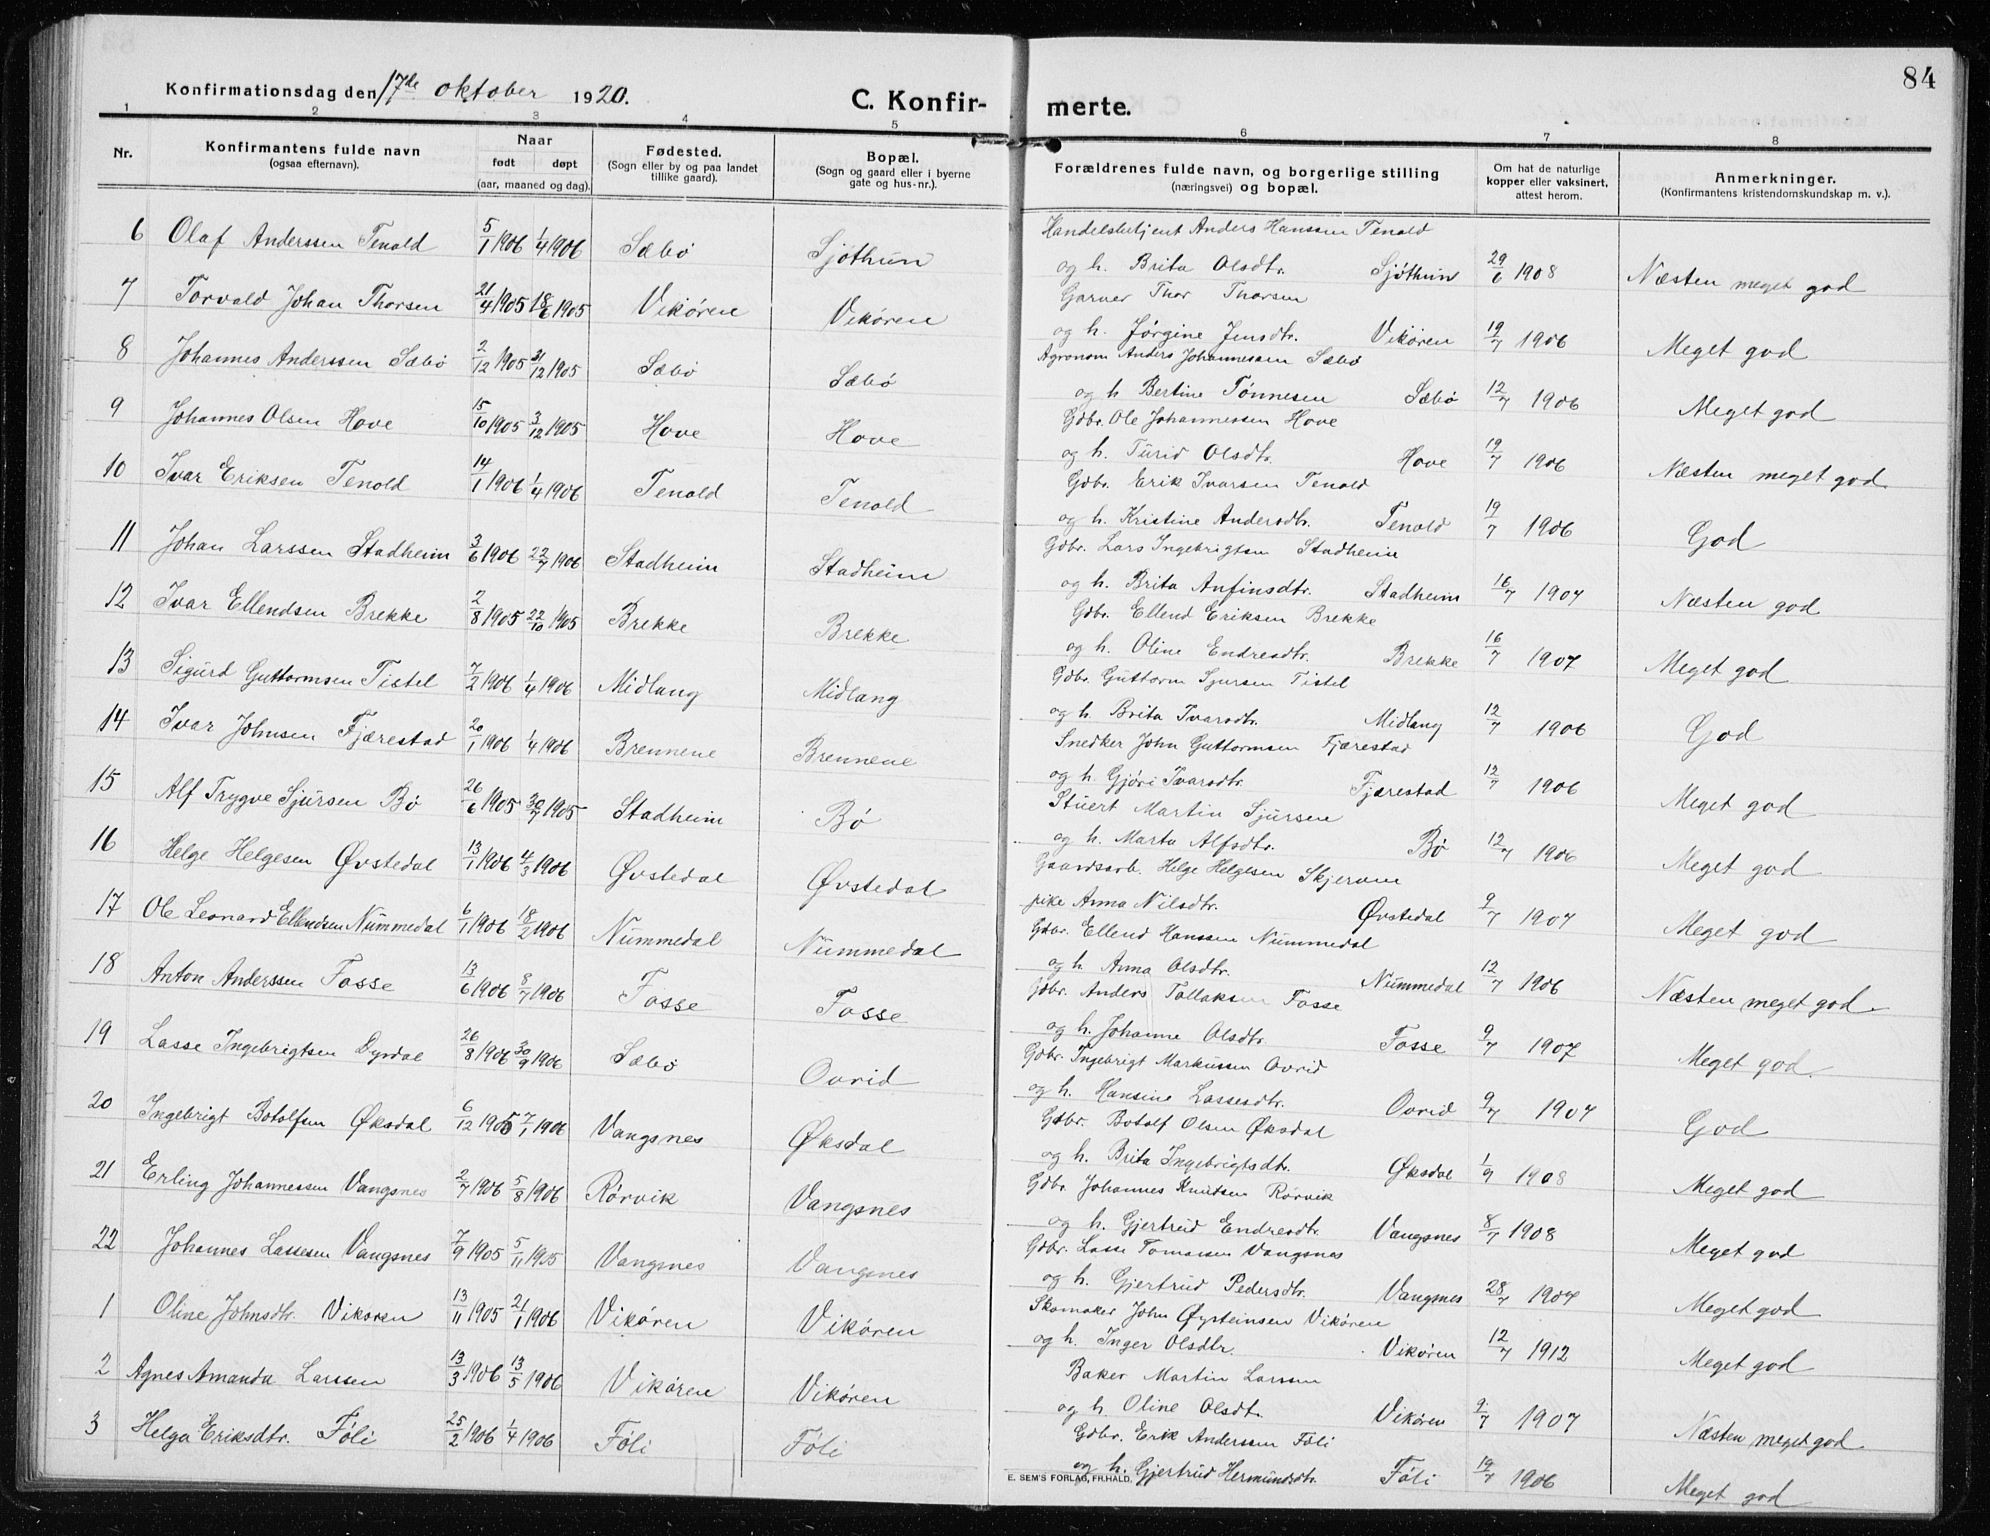 84
Konfirmationsdag den 17de oktober 1920.
C. Konfir- merte.
1 2 3 4 5 6 7 8
Nr.
Konfirmantens fulde navn
(ogsaa efternavn).
Naar
født døpt
(aar, maaned og dag).
Fødested.
(Sogn eller by og paa landet
tillike gaard).
Bopæl.
(Sogn og gaard eller i byerne
gate og hus-nr.).
Forældrenes fulde navn, og borgerlige stilling
(næringsvei) og bopæl.
Om hat de naturlige
kopper eller vaksinert,
attest herom.
Anmerkninger.
(Konfirmantens kristendomskundskap m. v.).
6 Olaf Anderssen Tenold 5/1 1906 1/4 1906 Sæbø Sjøthun Handelsbetjent Anders Hanssen Tenold
og h. Brita Olsdtr. Sjøthun 29/6 1908 Næsten meget god
7 Torvald Johan Thorsen 21/4 1905 18/6 1905 Vikøren Vikøren Garver Thor Thorsen
og h. Jørgine Jensdtr. Vikøren 19/7 1906 Meget god
8 Johannes Anderssen Sæbø 2/12 1905 31/12 1905 Sæbø Sæbø Agronom Anders Johannessen Sæbø
og h Bertine Tønnesen Sæbø 12/7 1906 Meget god
9 Johannes Olsen Hove 15/10 1905 3/12 1905 Hove Hove Gdbr. Ole Johannessen Hove
og h. Turid Olsdtr. Hove 19/7 1906 Næsten meget god.
10 Ivar Eriksen Tenold 14/1 1906 1/4 1906 Tenold Tenold Gdbr. Erik Ivarsen Tenold
og h. Kristine Andersdtr. Tenold 19/7 1906 God
11 Johan Larssen Stadheim 3/6 1906 22/7 1906 Stadheim Stadheim Gdbr. Lars Ingebrigtsen Stadheim
og h. Brita Anfinsdtr. Stadheim 16/7 1907 Næsten god
12 Ivar Ellendsen Brekke 2/8 1905 22/10 1905 Brekke Brekke Gdbr. Ellend Eriksen Brekke
og h. Oline Endresdtr. Brekke 16/7 1907 Meget god
13 Sigurd Guttormsen Tistel 7/2 1906 1/4 1906 Midlang Midlang Gdbr. Guttorm Sjursen Tistel
og h. Brita Ivarsdtr. Midlang 12/7 1906 God
14 Ivar Johnsen Fjærestad 20/1 1906 1/4 1906 Brennene Brennene Snedker John Guttormsen Fjærestad
og h. Gjøri Ivarsdtr. Fjærestad 12/7 1906 Meget god
15 Alf Trygve Sjursen Bø 26/6 1905 30/7 1905 Stadheim Bø Stuert Martin Sjursen
og h. Marta Alfsdtr. Bø 12/7 1906 Meget god
16 Helge Helgesen Øvstedal 13/1 1906 4/3 1906 Øvstedal Øvstedal Gaardsarb. Helge Helgesen Skjerven
pike Anna Nilsdtr. Øvstedal 9/7 1907 Meget god
17 Ole Leonard Ellendsen Nummedal 6/1 1906 18/2 1906 Nummedal Nummedal Gdbr. Ellend Hanssen Nummedal
og h. Anna Olsdtr. Nummedal 12/7 1906 Næsten meget god.
18 Anton Anderssen Fosse 13/6 1906 8/7 1906 Fosse Fosse Gdbr. Anders Tollaksen Fosse
og h. Johanne Olsdtr. Fosse 9/7 1907 Meget god
19 Lasse Ingebrigtsen Dyrdal 26/8 1906 30/9 1906 Sæbø Ovrid Gdbr. Ingebrigt Markussen Ovrid
og h. Hansine Lassesdtr. Ovrid 9/7 1907 God
20 Ingebrigt Botolfsen Øksdal 6/12 1905 7/1 1906 Vangsnes Øksdal Gdbr. Botolf Olsen Øksdal
og h. Brita Ingebrigtsdtr. Øksdal 1/9 1908 Meget god
21 Erling Johannessen Vangsnes 2/7 1906 5/8 1906 Rørvik Vangsnes Gdbr. Johannes Knutsen Rørvik
og h. Gjertrud Endresdtr. Vangsnes 8/7 1908 Meget god
22 Johannes Lassesen Vangsnes 7/9 1905 5/11 1905 Vangsnes Vangsnes Gdbr. Lasse Tomassen Vangsnes
og h. Gjertrud Pedersdtr. Vangsnes 28/7 1907 Meget god
1 Oline Johnsdtr. Vikøren 13/11 1905 21/1 1906 Vikøren Vikøren Skomaker John Øysteinsen Vikøren
og h. Inger Olsdtr. Vikøren 12/7 1912 Meget god
2 Agnes Amanda Larssen 13/3 1906 13/5 1906 Vikøren Vikøren Baker Martin Larssen
og h. Oline Olsdt. Vikøren 9/7 1907 Næsten meget god.
3 Helga Eriksdtr. Føli 25/2 1906 1/4 1906 Føli Føli Gdbr. Erik Anderssen Føli
og h. Gjertrud Hermundsdtr. Føli 19/7 1906 Meget god
E. SEM'S FORLAG, FR.HALD.